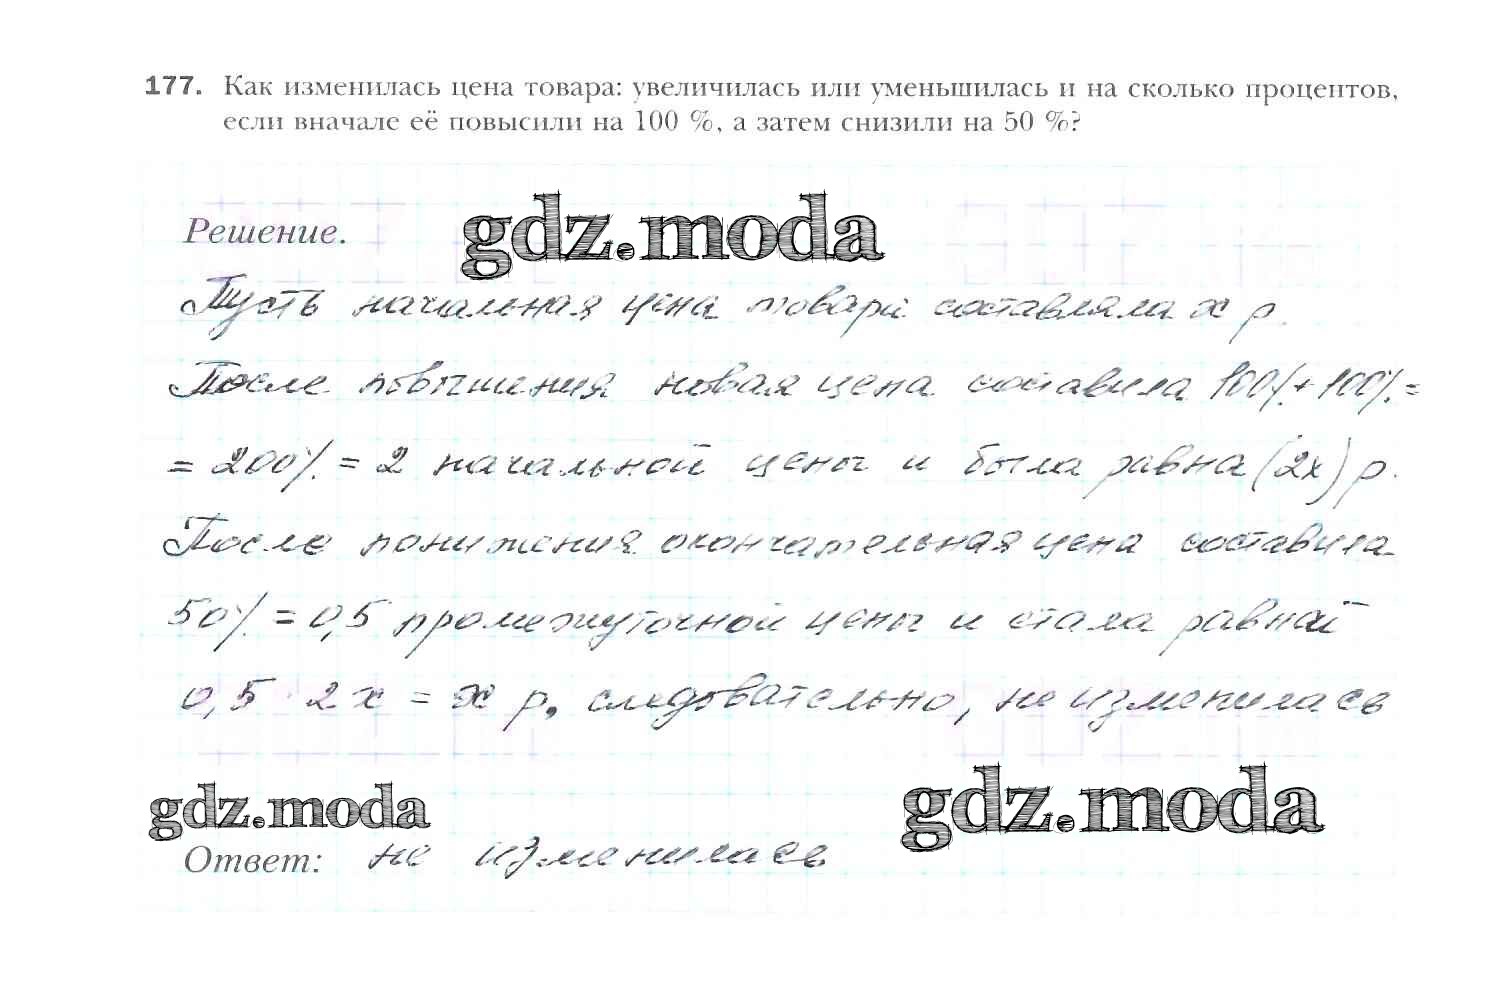 177. Как изменилась цена товара: увеличилась или уменьшилась и на сколько процентов,
если вначале её повысили на 100 %, а затем снизили на 50 %?
gdz.moda
Решение.
Пусть начальная цена товара составляла x р.
После повышения новая цена составила 100% + 100% =
= 200% = 2 начальной цены и была равна (2x) р.
После понижения окончательная цена составила
50% = 0,5 промежуточной цены и стала равной
0,5 · 2x = x р, следовательно, не изменилась
gdz.moda
gdz.moda
Ответ: не изменилась